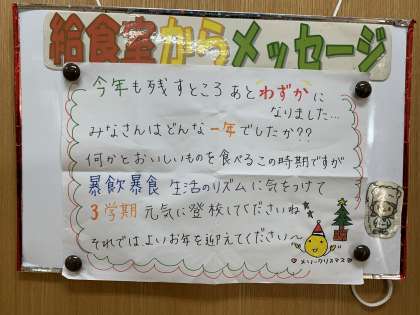 給食室からメッセージ
今年も残すところあとわずかに
なりました…
みなさんはどんな一年でしたか??
何かとおいしいものを食べるこの時期ですが
暴飲暴食 生活のリズムに気をつけて
3学期 元気に登校してくださいね
それではよいお年を迎えてください〜
メリークリスマス